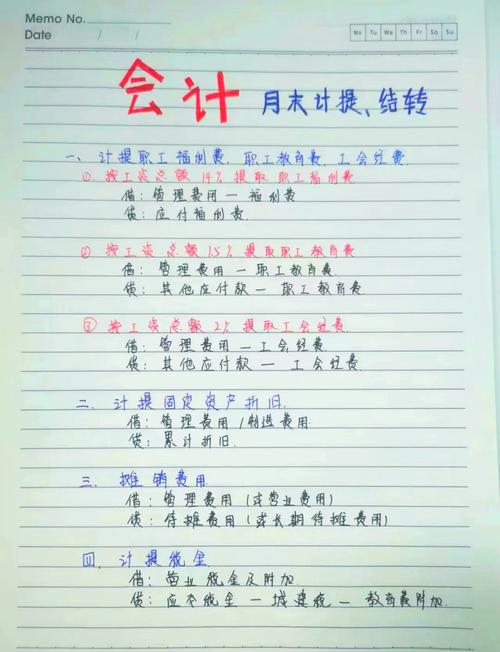 Memo No.
Date / /
Mo Tu We Th Fr Sa Su
会计 月末计提、结转
一、计提职工福利费、职工教育费、工会经费
① 按工资总额14%提取职工福利费
借:管理费用—福利费
贷:应付福利费.
② 按工资总额1.5%提取职工教育费
借:管理费用—职工教育费.
贷:其他应付款—职工教育费
③ 按工资总额2%提取工会经费.
借:管理费用—工会经费
贷:其他应付款—工会经费
二、计提固定资产折旧
借:管理费用/制造费用
贷:累计折旧.
三、摊销费用
借:管理费用(或营业费用)
贷:待摊费用(或长期待摊费用)
四、计提税金
借:营业税金及附加.
贷:应交税金—城建税—教育费附加.